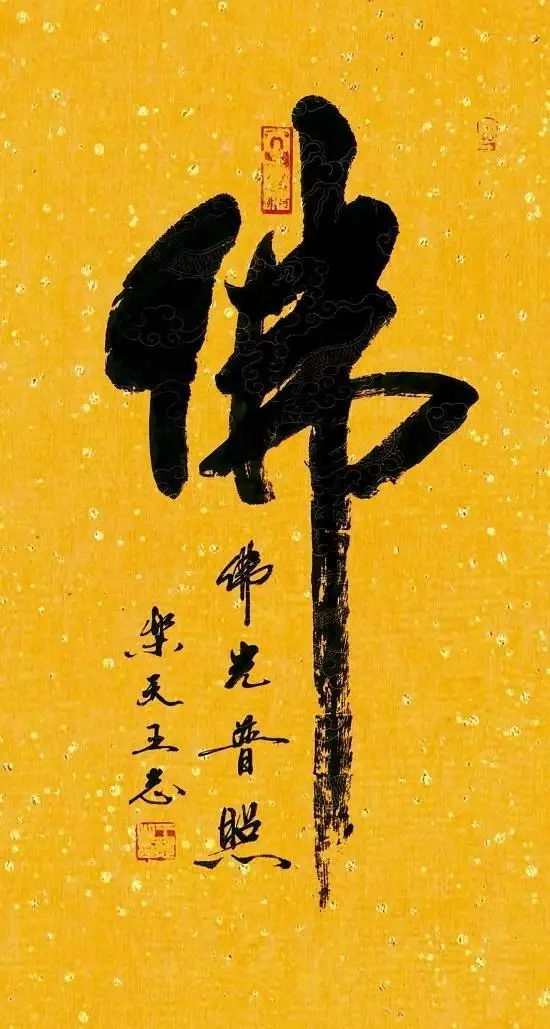 佛
佛光普照
乐天王志